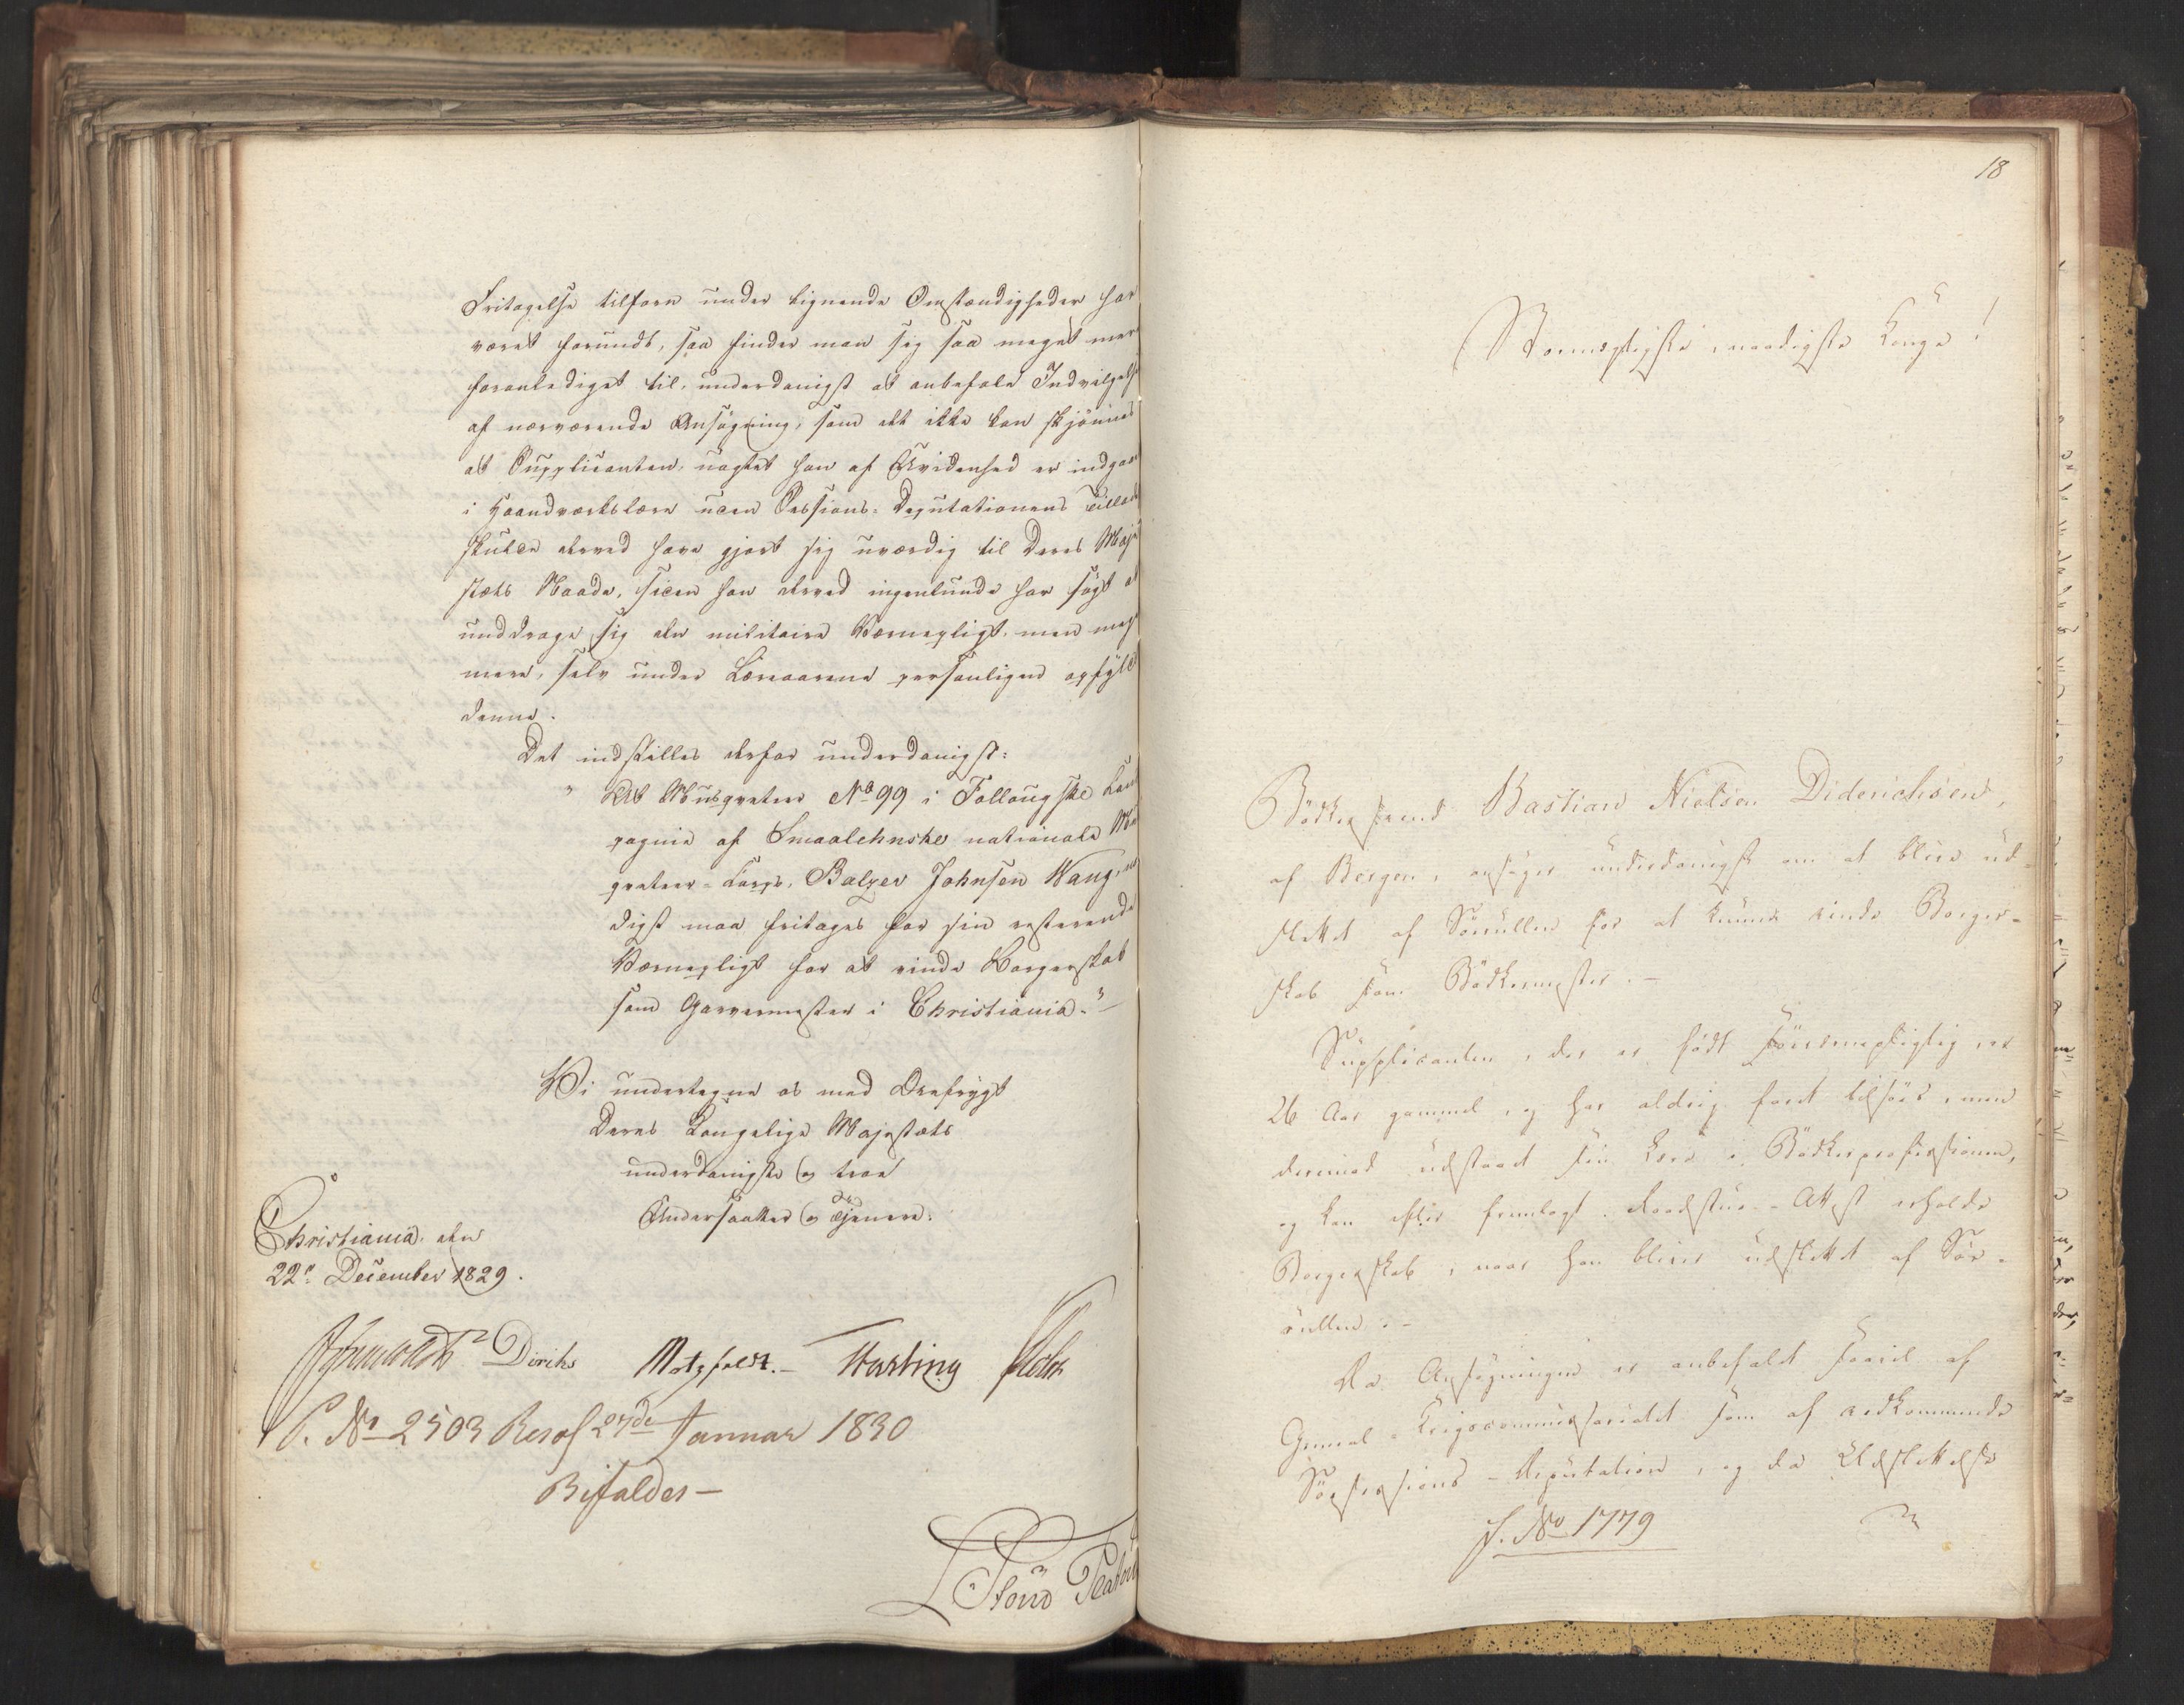 Fritagelse tilforn under lignende Omstændigheder har
været forundt, saa finder man sig saa meget mere
foranlediget til underdanigst at anbefale Indvilgelse
af nærværende Ansøgning, som det ikke kan skjønnes
at Supplicanten, uagtet han af Uvidenhed er indgaaet
i Haandværkslære uden Sessions-Deputationens Tilladelse
skulde derved have gjort sig uværdig til Deres Maje
stæts Naade, siden han derved ingenlunde har søgt at
unddrage sig den militaire Værnepligt, men meget
mere, selv under Læreaarene personligen opfyldt
denne.
Det indstilles derfor underdanigst:
" At Musqueteer No 99 i Follougske Com
pagnie af Smaalehnske nationale Mus
queteer-Corps, Balzer Johnsen Wang, naa
digst maa fritages for sin resterende
Værnepligt for at vinde Borgerskab
som Garvermester i Christiania."
Vi undertegne os med Ærefrygt
Deres Kongelige Majestæts
underdanigste og troe
Undersaatter og Tjenere.
Christiania den
22de December 1829.
Diriks Motzfeldt. Fasting
P. No 2503 Resol 27de Januar 1830
Bifaldes
18
Stormægtigste, naadigste Konge!
Bödkersvend Bastian Nielsen Diderichsen,
af Bergen, ansøger underdanigst om at blive ud-
slettet af Sörullen for at kunne vinde Borger-
skab som Bödkermester.-
Supplicanten, der er født Söværnepligtig, er
26 Aar gammel, og har aldrig faret tilsøes, men
derimod udstaaet sin Lære i Bödkerprofessionen,
og kan efter fremlagt Raadstue-Attest erholde
Borgerskab, naar han bliver udslettet af Sör-
rullen.-
Da Ansøgningen er anbefalet saavel af
General-Krigscommissariatet som af vedkommende
Sösessions-Deputation, og da Udslettelse
J. No 1779